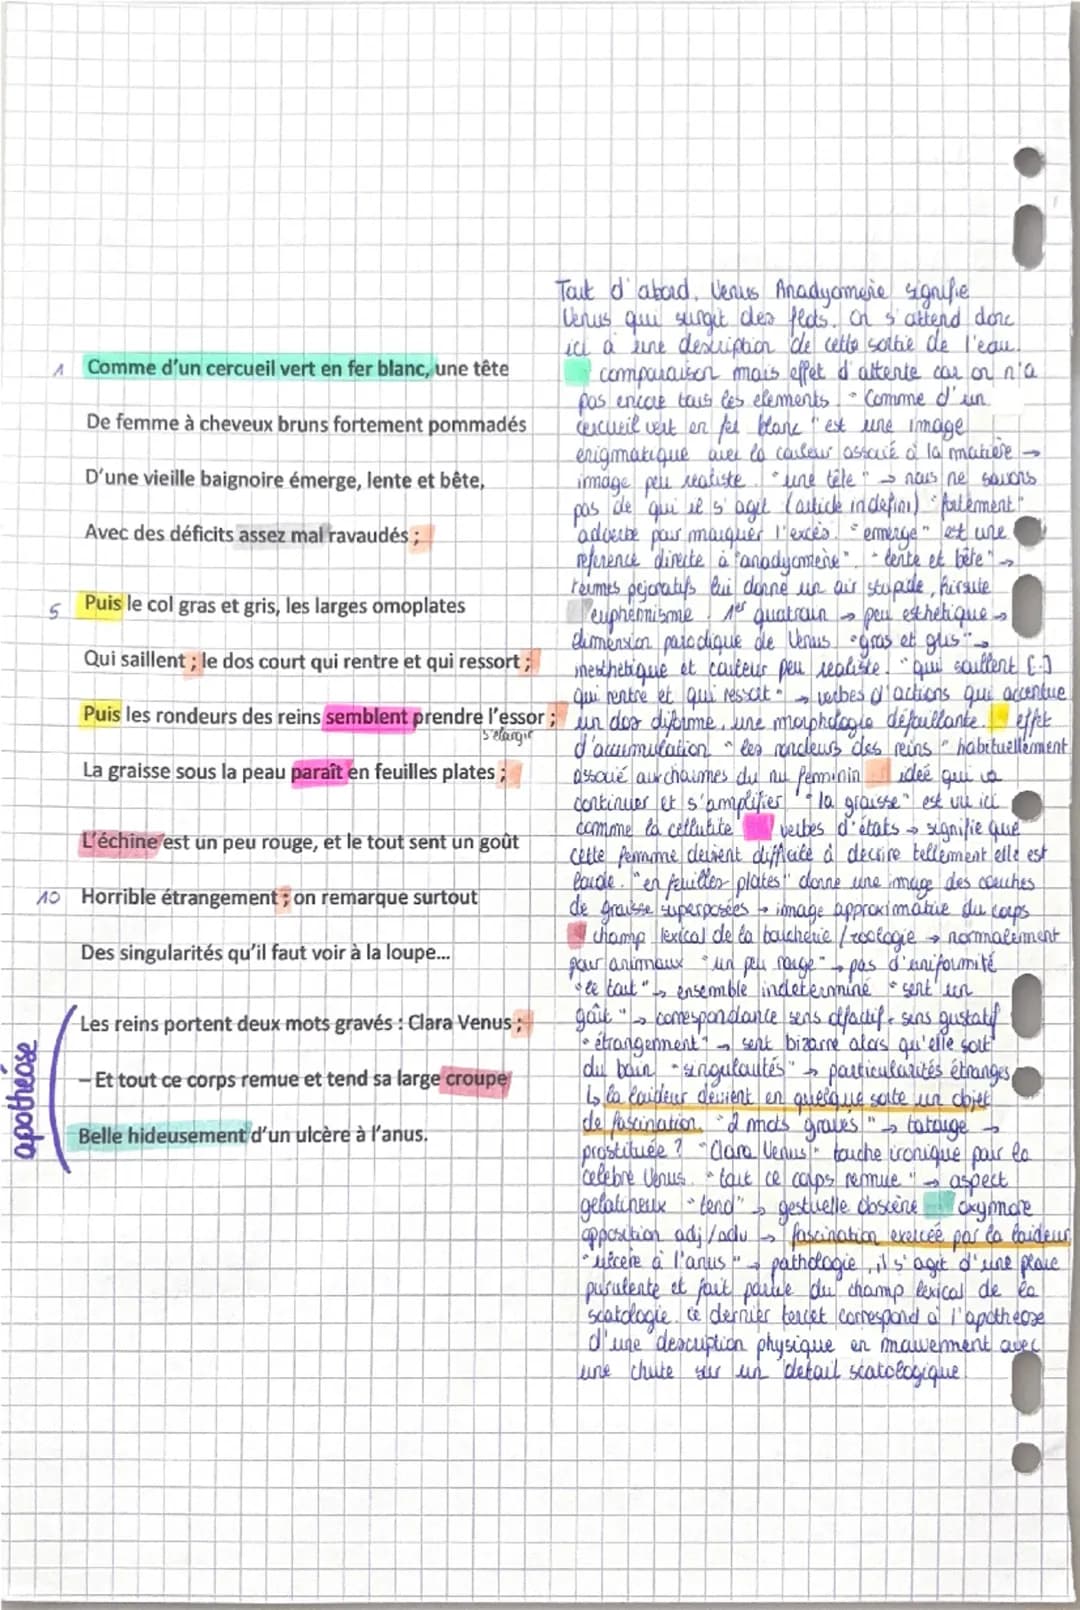 1 Comme d'un cercueil vert en fer blanc, une tête
De femme à cheveux bruns fortement pommadés
D'une vieille baignoire émerge, lente et bête,
Avec des déficits assez mal ravaudés ;
5 Puis le col gras et gris, les larges omoplates
Qui saillent ; le dos court qui rentre et qui ressort ;
Puis les rondeurs des reins semblent prendre l'essor ;
s'élargir
La graisse sous la peau paraît en feuilles plates ;
L'échine est un peu rouge, et le tout sent un goût
10 Horrible étrangement ; on remarque surtout
Des singularités qu'il faut voir à la loupe...
apothéose
Les reins portent deux mots gravés : Clara Venus ;
– Et tout ce corps remue et tend sa large croupe
Belle hideusement d'un ulcère à l'anus.
Tout d'abord, Venus Anadyomene signifie
Venus qui surgit des flots. On s'attend donc
ici à une description de cette sortie de l'eau.
comparaison mais effet d'attente car on n'a
pas encore tous les elements. "Comme d'un
cercueil vert en fer blanc" est une image
enigmatique avec la couleur associé à la matière →
image peu realiste. "une tête" → nous ne savons
pas de qui il s'agit (article indefini) "fortement"
adverbe pour marquer l'excès. "emerge" est une
réference directe à "anadyomène". "lente et bête" →
termes pejoratifs lui donne un air stupide, hirsute
euphemisme. 1er quatrain → peu esthétique →
dimension parodique de Venus "gras et gris" →
inesthetique et couleur peu realiste. "qui saillent [..]
qui rentre et qui ressort" → verbes d'actions qui accentue
un dos difforme, une morphologie défaillante. effet
d'accumulation "les rondeurs des reins" habituellement
associé aux charmes du nu féminin idée qui va
continuer et s'amplifier "la graisse" est vu ici
comme la cellulite verbes d'états → signifie que
cette femme devient difficile à décrire tellement elle est
laide. "en feuilles plates" donne une image des couches
de graisse superposées → image approximative du corps
champ lexical de la boucherie / zoologie → normalement
pour animaux "un peu rouge" → pas d'uniformité
"le tout" → ensemble indeterminé "sent un
goût" → correspondance sens olfactif - sens gustatif
"étrangement" → sent bizarre alors qu'elle sort
du bain "singularités" → particularités étranges
↳ la laideur devient en quelque sorte un objet
de fascination. "2 mots gravés" → tatouge →
prostituée ? "Clara Venus" touche ironique pour la
celebre Venus. "tout ce corps remue" → aspect
gelatineux "tend" → gestuelle obscène oxymore
opposition adj/adv → fascination exercée par la laideur
"ulcère à l'anus" → pathologie, il s'agit d'une plaie
purulente et fait partie du champ lexical de la
scatologie. ce dernier tercet correspond à l'apotheose
d'une description physique en mouvement avec
une chute sur un detail scatologique.